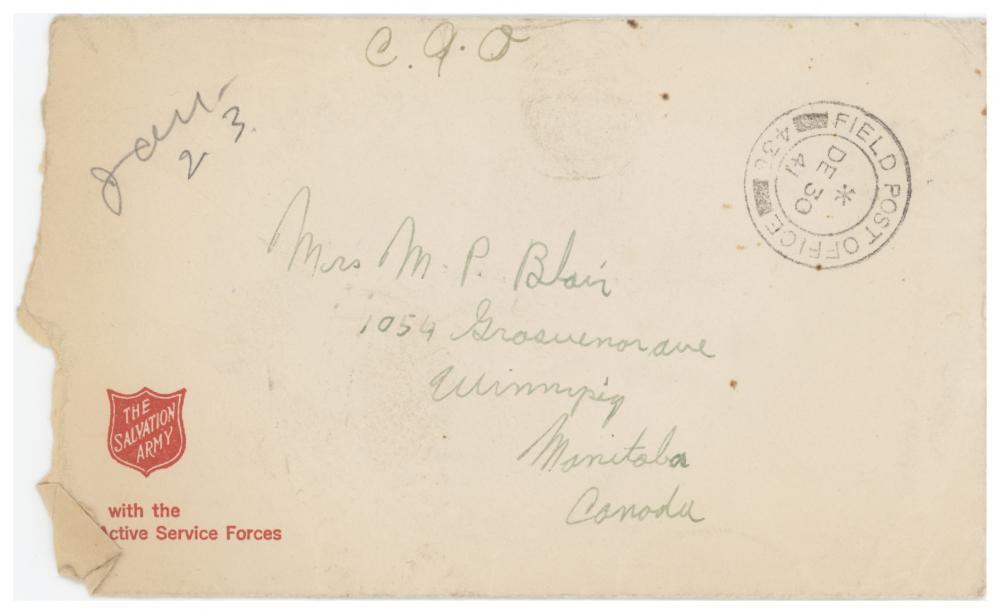 C.A.O
Jan.
23.
FIELD POST OFFICE
DE 30
41
Mrs M. P. Blair
1054 Grosvenor ave
Winnipeg
Manitoba
Canada
THE
SALVATION
ARMY
with the
Active Service Forces